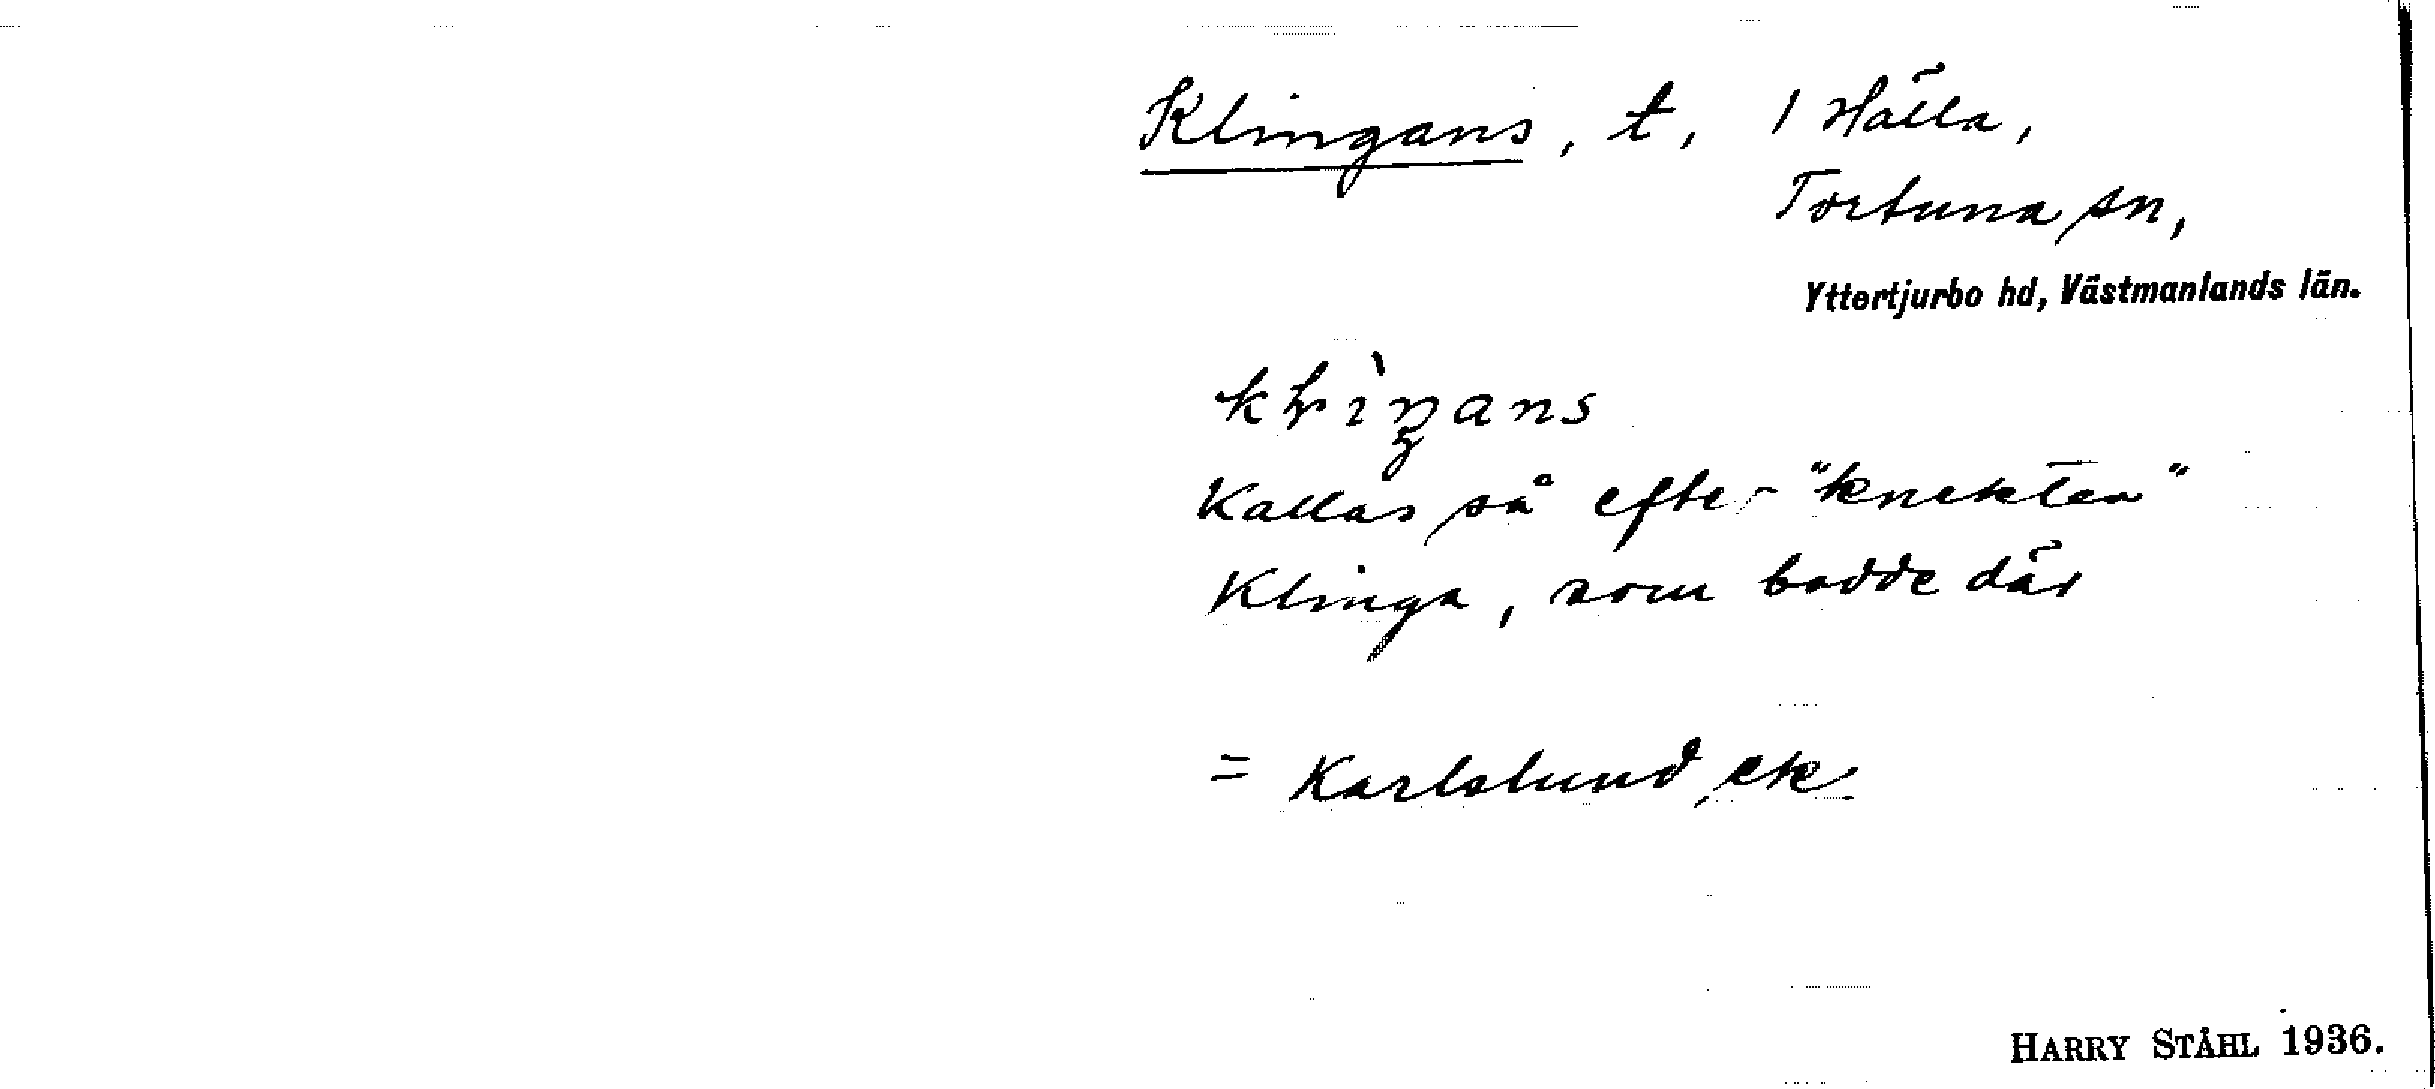 Klingans, t, / Hälla,
Tortuna sn,
Yttertjurbo hd, Västmanlands län.
Kallas så efter "knekten"
Klinga, som bodde där
= Karlslund, ek
HARRY STÅHL 1936.